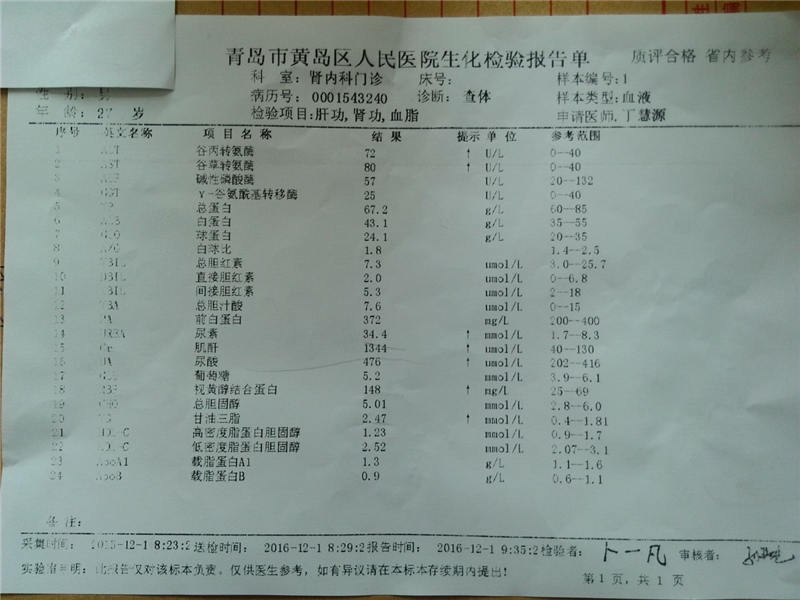 青岛市黄岛区人民医院生化检验报告单 质评合格 省内参考
科 室: 肾内科门诊 床号: 样本编号:1
性 别: 男 病历号: 0001543240 诊断: 查体 样本类型:血液
年 龄: 27 岁 检验项目:肝功,肾功,血脂 申请医师,丁慧源
序号 英文名称 项目名称 结果 提示 单位 参考范围
谷丙转氨酶 72 ↑ U/L 0--40
谷草转氨酶 80 ↑ U/L 0--40
碱性磷酸酶 57 U/L 20--132
4 GGT γ-谷氨酰基转移酶 25 U/L 0--40
5 总蛋白 67.2 g/L 60--85
6 白蛋白 43.1 g/L 35--55
7 球蛋白 24.1 g/L 20--35
8 白球比 1.8 1.4--2.5
9 TBIL 总胆红素 7.3 umol/L 3.0--25.7
10 DBIL 直接胆红素 2.0 umol/L 0--6.8
11 IBIL 间接胆红素 5.3 umol/L 2--18
12 TBA 总胆汁酸 7.6 umol/L 0--15
13 PA 前白蛋白 372 mg/L 200--400
14 UREA 尿素 34.4 ↑ mmol/L 1.7--8.3
15 Cr 肌酐 1344 ↑ umol/L 40--130
16 UA 尿酸 476 ↑ umol/L 202--416
17 葡萄糖 5.2 mmol/L 3.9--6.1
18 RBP 视黄醇结合蛋白 148 ↑ mg/L 25--69
19 CHO 总胆固醇 5.01 mmol/L 2.8--6.0
20 TG 甘油三脂 2.47 ↑ mmol/L 0.4--1.81
21 HDL-C 高密度脂蛋白胆固醇 1.23 mmol/L 0.9--1.7
22 LDL-C 低密度脂蛋白胆固醇 2.52 mmol/L 2.07--3.1
23 ApoA1 载脂蛋白A1 1.3 g/L 1.1--1.6
24 ApoB 载脂蛋白B 0.9 g/L 0.6--1.1
备 注:
采集时间: 12-1 8:23:2 送检时间: 2016-12-1 8:29:2 报告时间: 2016-12-1 9:35:2 检验者: 卜一凡 审核者:
实验室声明: 此报告仅对该标本负责。仅供医生参考, 如有异议请在本标本存续期内提出!
第 1 页, 共 1 页